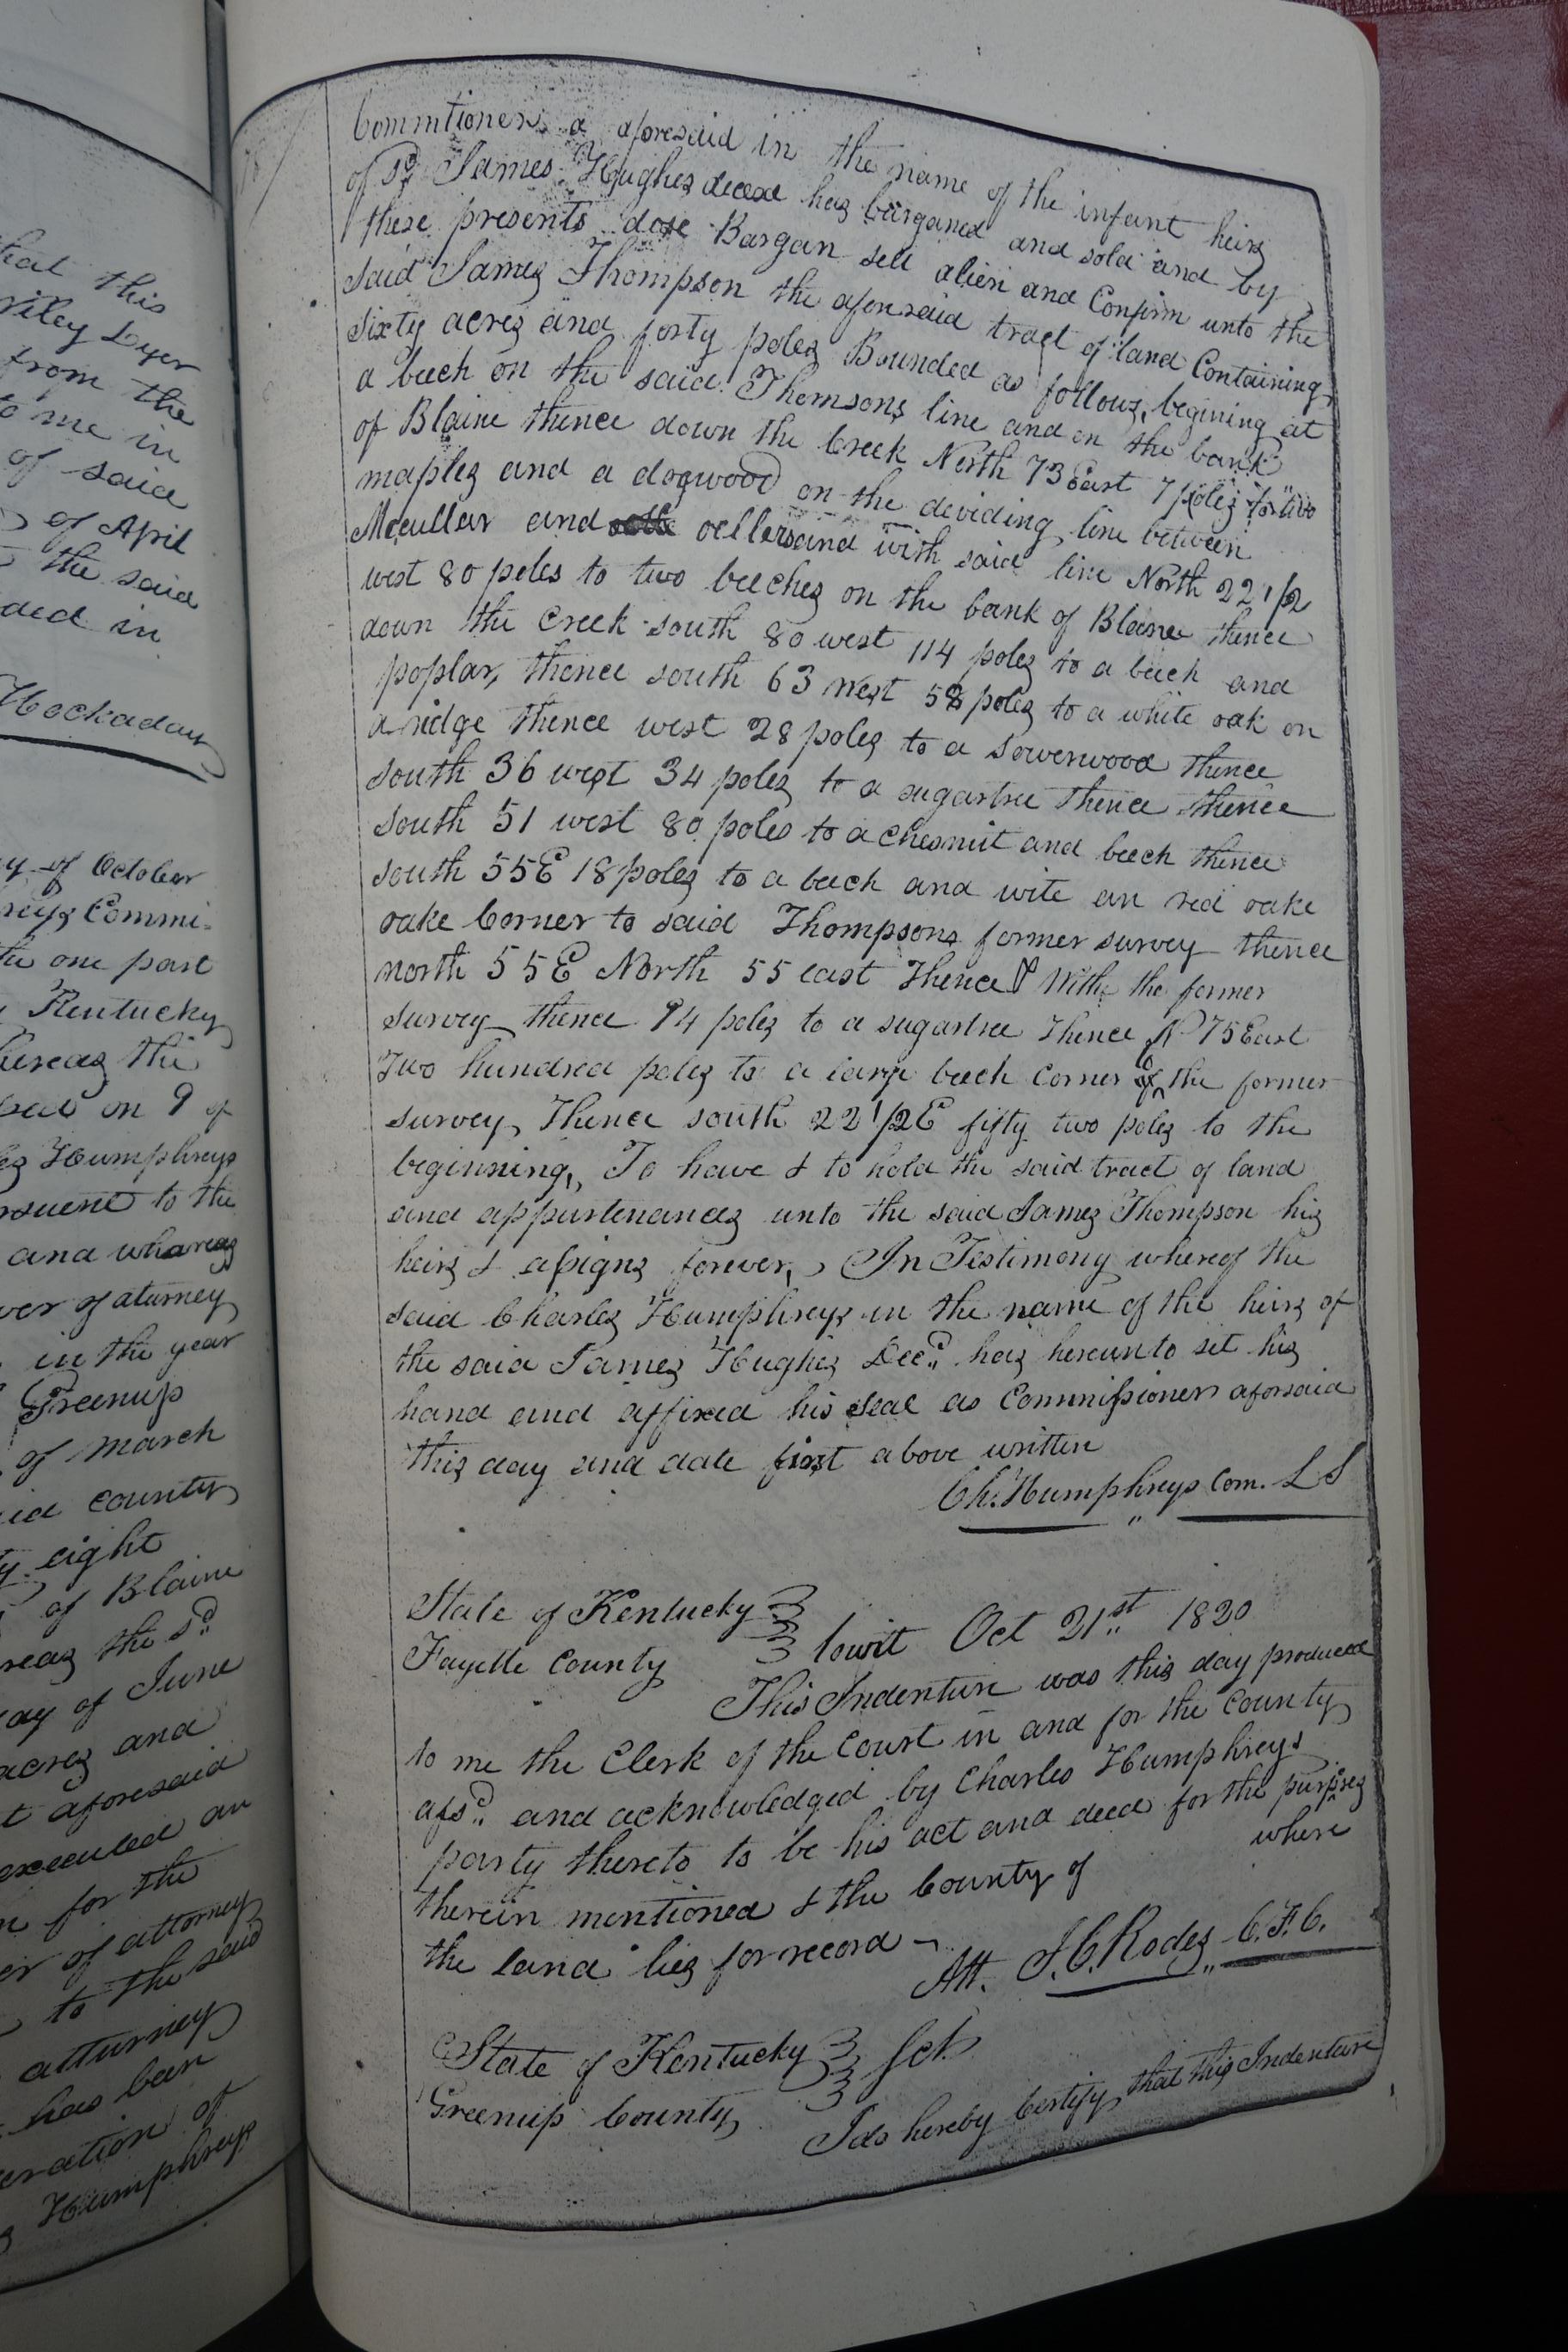 hat this
Wiley Dyer
from the
to me in
of said
of April
the said
ded in
Hockaday
y of October
reys Commi-
the one part
Kentucky
hereas the
on 9 of
les Humphreys
rsuent to the
and whareas
wer of aturney
in the year
Greenup
of March
id county
ty eight
of Blaine
reas the sd
ay of June
acres and
t aforesaid
executed an
n for the
er of attorney
to the said
atturney
has ben
eration of
s Humphreys
Commtioner a aforesaid in the name of the infant heirs
of sd James Hughes decese has barganed and sold and by
these presents dose Bargan sell alien and Confirm unto the
said James Thompson the aforsaid tract of land Containing
sixty acres and forty poles Bounded as follows, begining at
a beech on the said Thomsons line and on the bank
of Blaine thence down the Creek North 73 East 7 poles to two
maples and a dogwood on the deviding line between
Mcullar and oellers and with said line North 22 1/2
west 80 poles to two beeches on the bank of Blaine thence
down the Creek south 80 west 114 poles to a beech and
poplar, thence south 63 west 58 poles to a white oak on
a ridge thence west 28 poles to a Sowerwood thence
south 36 west 34 poles to a sugartree thence thence
south 51 west 80 poles to a Chesnut and beech thence
south 55E 18 poles to a beech and wite an red oake
oake Corner to said Thompsons former survey thence
north 55E North 55 east Thence With the former
survey thence 94 poles to a sugartree thence N 75 East
Two hundred poles to a large beech Corner of the former
survey, Thence south 22 1/2 E fifty two poles to the
beginning, To have & to hold the said tract of land
and appurtenances unto the said James Thompson his
heirs & assigns forever, In Testimony whereof the
said Charles Humphreys in the name of the heirs of
the said James Hughes Decd. has hereunto set his
hand and affixed his seal as Commissioner aforsaid
this day and date first above written
Ch. Humphreys Com. L S
State of Kentucky
Fayette County towit Oct 21st 1820
This Indenture was this day produced
to me the Clerk of the Court in and for the County
afsd. and acknowledged by Charles Humphreys
party thereto to be his act and deed for the purposes
therein mentioned & the County of where
the land lies for record
Att. J. C. Rodes C. F. C.
State of Kentucky
Greenup County Sct.
I do hereby Certify that this Indenture